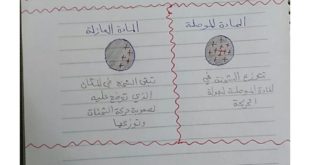 المادة الموصلة
تتوزع الشحنة في
المادة الموصلة لسهولة
الحركة
المادة العازلة
تبقى الشحنة في المكان
الذي توضع عليه
لصعوبة حركة الشحنات
وتوزعها